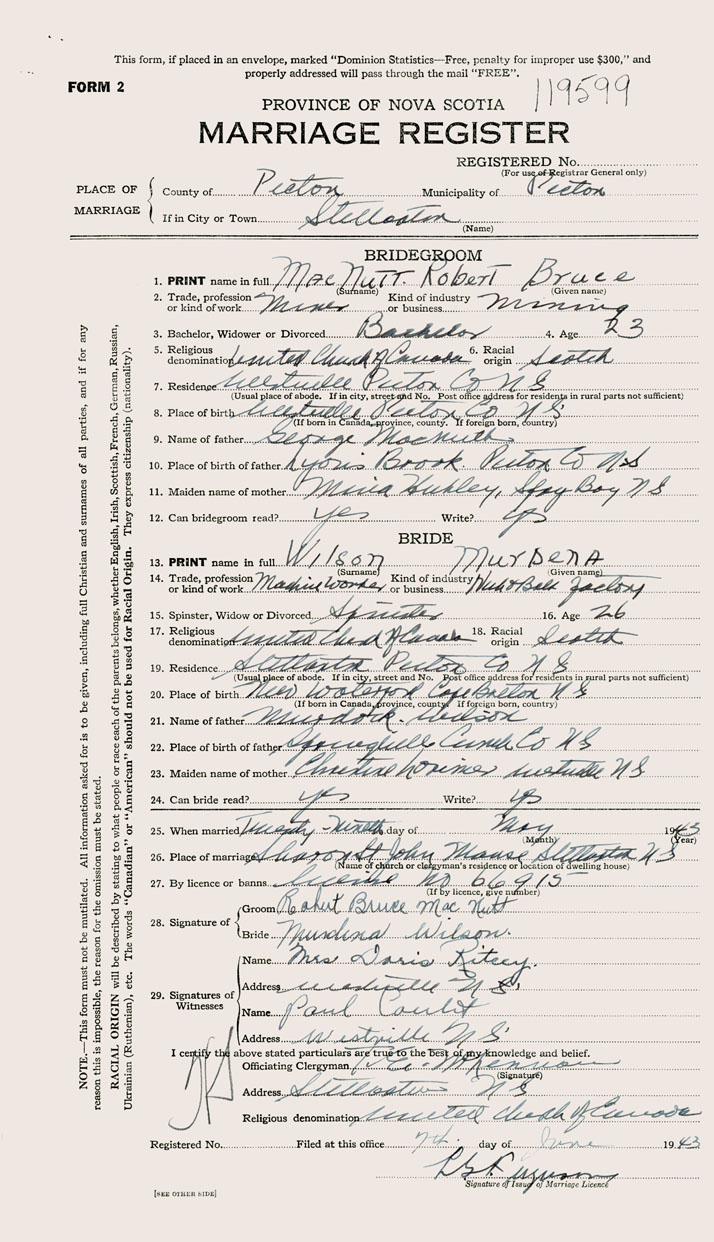 This form, if placed in an envelope, marked "Dominion Statistics—Free, penalty for improper use $300," and
properly addressed will pass through the mail "FREE".
FORM 2
119599
PROVINCE OF NOVA SCOTIA
MARRIAGE REGISTER
REGISTERED No.
(For use of Registrar General only)
PLACE OF MARRIAGE
County of Pictou Municipality of Pictou
If in City or Town Stellarton
(Name)
BRIDEGROOM
1. PRINT name in full MacNutt Robert Bruce
(Surname) (Given name)
2. Trade, profession or kind of work Miner Kind of industry or business Mining
3. Bachelor, Widower or Divorced Bachelor 4. Age 23
5. Religious denomination United Church of Canada 6. Racial origin Scotch
7. Residence Westville Pictou Co N S
(Usual place of abode. If in city, street and No. Post office address for residents in rural parts not sufficient)
8. Place of birth Westville Pictou Co N S
(If born in Canada, province, county. If foreign born, country)
9. Name of father George MacNutt
10. Place of birth of father Lyons Brook Pictou Co N S
11. Maiden name of mother Hubley, Spry Bay N S
12. Can bridegroom read? yes Write? yes
BRIDE
13. PRINT name in full Wilson Murdena
(Surname) (Given name)
14. Trade, profession or kind of work Machine Worker Kind of industry or business Nut & Bolt Factory
15. Spinster, Widow or Divorced Spinster 16. Age 26
17. Religious denomination United Church of Canada 18. Racial origin Scotch
19. Residence Stellarton Pictou Co N S
(Usual place of abode. If in city, street and No. Post office address for residents in rural parts not sufficient)
20. Place of birth New Waterford Cape Breton N S
(If born in Canada, province, county. If foreign born, country)
21. Name of father Murdock Wilson
22. Place of birth of father Springhill Cumb Co N S
23. Maiden name of mother Christine Westville N S
24. Can bride read? yes Write? yes
25. When married Twenty-ninth day of May 1943
(Month) (Year)
26. Place of marriage Sharon St John Manse Stellarton N S
(Name of church or clergyman's residence or location of dwelling house)
27. By licence or banns License No 66915
(If by licence, give number)
28. Signature of
Groom Robert Bruce MacNutt
Bride Murdena Wilson.
29. Signatures of Witnesses
Name Mrs Doris
Address Westville N S
Name Paul
Address Westville N S
I certify the above stated particulars are true to the best of my knowledge and belief.
Officiating Clergyman
(Signature)
Address Stellarton N S
Religious denomination United Church of Canada
Registered No. Filed at this office 7th day of June 1943
Ferguson
Signature of Issuer of Marriage Licence
[SEE OTHER SIDE]
NOTE.—This form must not be mutilated. All information asked for is to be given, including full Christian and surnames of all parties, and if for any
reason this is impossible, the reason for the omission must be stated.
RACIAL ORIGIN will be described by stating to what people or race each of the parents belongs, whether English, Irish, Scottish, French, German, Russian,
Ukrainian (Ruthenian), etc. The words "Canadian" or "American" should not be used for Racial Origin. They express citizenship (nationality).